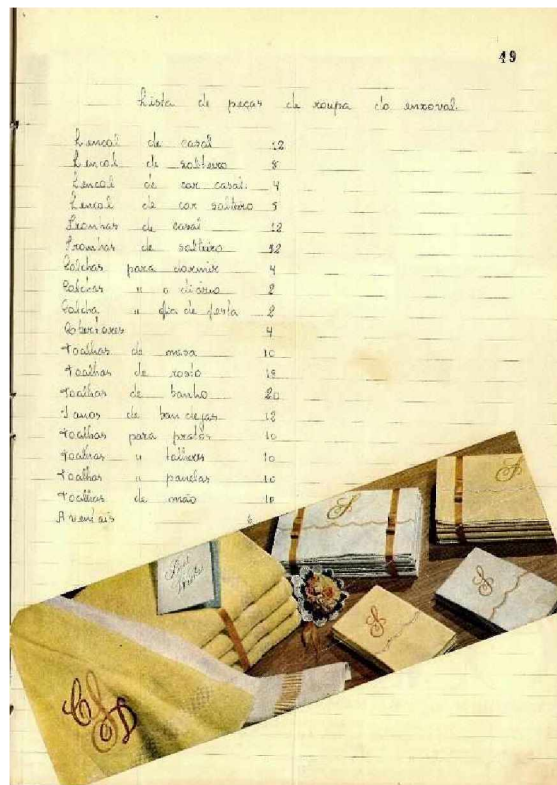 49
Lista de peças de roupa do enxoval.
Lencol de casal 12
Lencol de solteiro 8
Lencol de cor casal. 4
Lencol de cor solteiro 5
Fronhas de casal 12
Fronhas de solteiro 12
Colchas para dormir 4
Colchas " o diário 2
Colcha " dia de festa 2
Cobertores 4
Toalhas de mesa 10
Toalhas de rosto 18
Toalhas de banho 20
Panos de bandejas 12
Toalhas para pratos 10
Toalhas " talheres 10
Toalhas " panelas 10
Toalhas de mão 10
Aventais 6